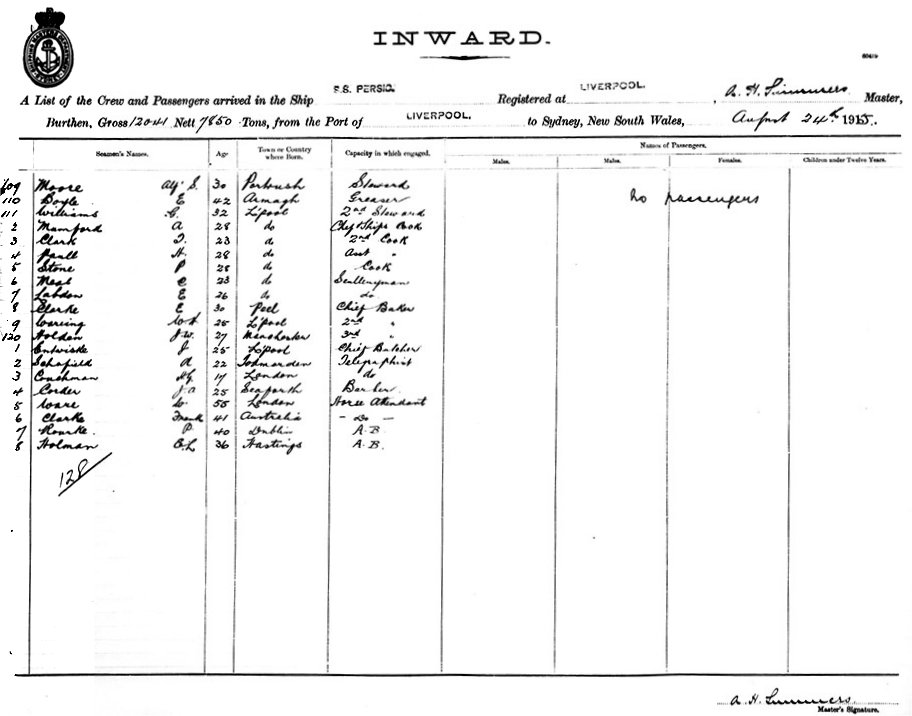 INWARD.
SHIPPING MASTERS DEPARTMENT SYDNEY
A List of the Crew and Passengers arrived in the Ship S.S. PERSIC. Registered at LIVERPOOL. , A. H. Summers Master,
Burthen, Gross 12041 Nett 7850 Tons, from the Port of LIVERPOOL. to Sydney, New South Wales, August 24th 1915.
Seamen's Names. Age Town or Country where Born. Capacity in which engaged. Names of Passengers.
Males. Males. Females. Children under Twelve Years.
109 Moore S. 30 Steward
110 Boyle E 42 Armagh Greaser no passengers
111 Williams G. 32 L'pool 2nd Steward
2 Mumford A 28 do Chef Ships Cook
3 Clark T. 23 do 2nd Cook
4 Paull H. 28 do Asst "
5 Stone P 28 do Cook
6 Neal C 23 do Sculleryman
7 Labdon E 26 do do
8 Clarke E 30 Peel Chief Baker
9 Wareing 25 L'pool 2nd "
120 Holden J.W. 27 Manchester 3rd "
1 Entwistle J 25 L'pool Chief Butcher
2 Schofield A 22 Todmorden Telegraphist
3 Couchman 17 London do
4 Corder J.A 25 Seaforth Barber
5 Ware W. 55 London Horse Attendant
6 Clarke Frank 41 Australia - Do -
7 Rourke. P. 40 Dublin A.B
8 Holman E.L 36 Hastings A.B.
128
A. H. Summers
Master's Signature.